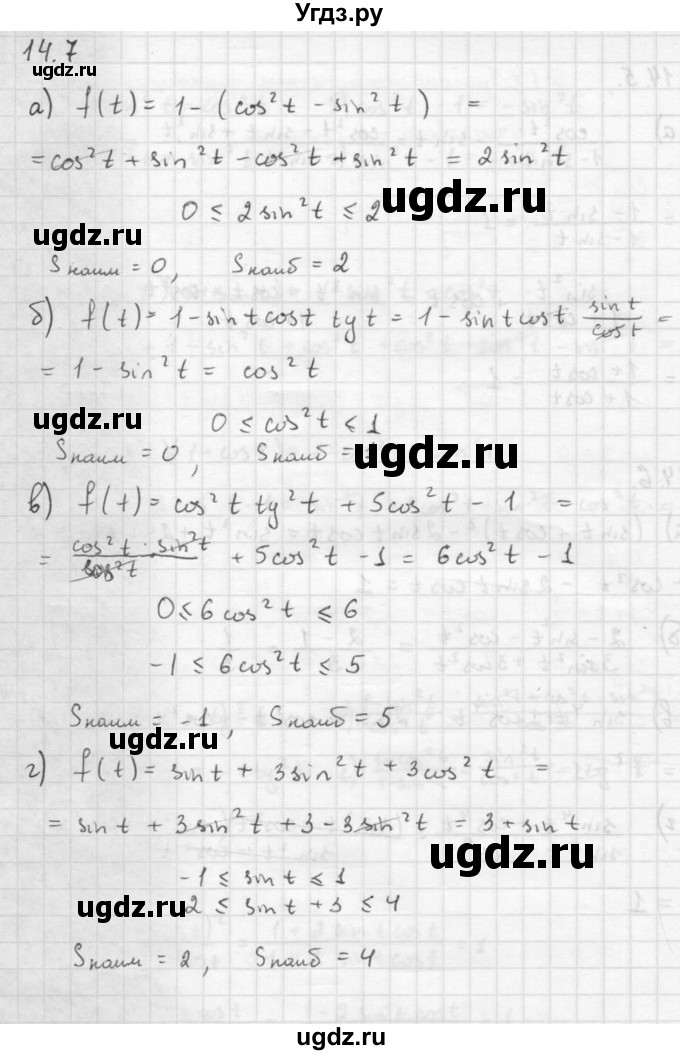 Угдз.ру
14.7
ugdz.ru
а) f(t) = 1 - (cos²t - sin²t) =
= cos²t + sin²t - cos²t + sin²t = 2 sin²t
0 ≤ 2 sin²t ≤ 2
ugdz.ru
ugdz.ru
Sнаим = 0, Sнаиб = 2
б) f(t) = 1 - sin t cos t tg t = 1 - sin t cos t sin t / cos t =
= 1 - sin²t = cos²t
ugdz.ru
0 ≤ cos²t ≤ 1
Sнаим = 0, Sнаиб =
ugdz.ru
в) f(t) = cos²t tg²t + 5cos²t - 1 =
= cos²t · sin²t / cos²t + 5cos²t - 1 = 6cos²t - 1
0 ≤ 6cos²t ≤ 6
-1 ≤ 6cos²t ≤ 5
Sнаим = -1, Sнаиб = 5
ugdz.ru
г) f(t) = sin t + 3sin²t + 3cos²t =
= sin t + 3sin²t + 3 - 3sin²t = 3 + sin t
ugdz.ru
-1 ≤ sin t ≤ 1
2 ≤ sin t + 3 ≤ 4
ugdz.ru
Sнаим = 2, Sнаиб = 4
ugdz.ru